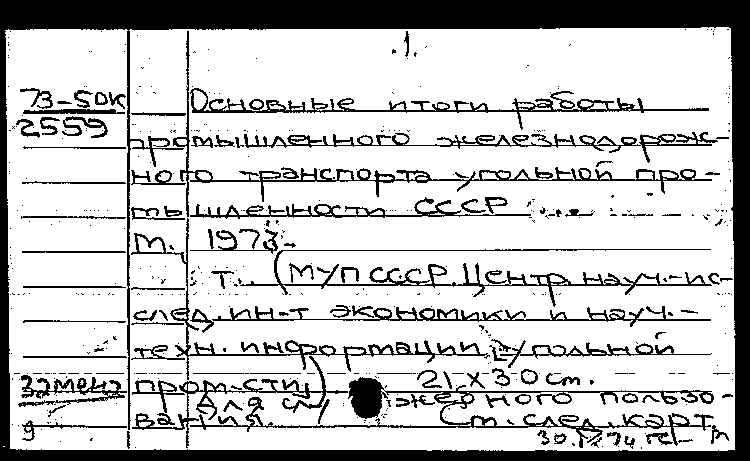 .1.
73-5ОК
2559
Основные итоги работы
промышленного железнодорож-
ного транспорта угольной про-
мышленности СССР ...
М., 1973-
т.. (МУП СССР. Центр. науч.-ис-
след. ин-т экономики и науч.-
техн. информации угольной
замена пром-сти) 21 x 30 см.
Для служебного пользо-
вания. См. след. карт.
9
30. IV 74